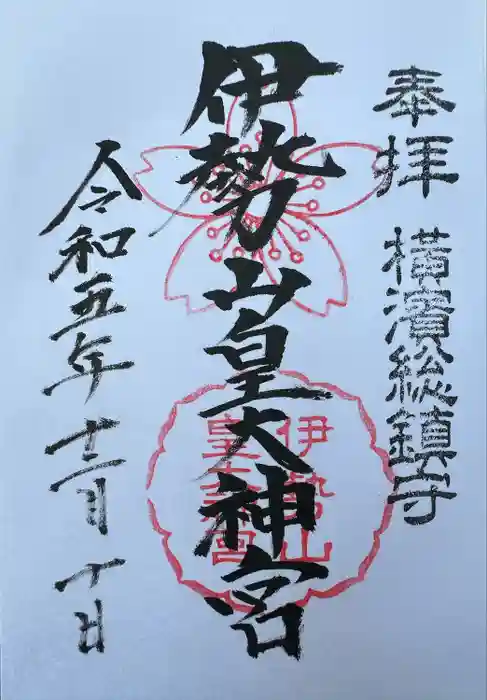 奉拝
横濱総鎮守
伊勢山皇大神宮
伊勢山
皇大神宮
令和五年十二月十日